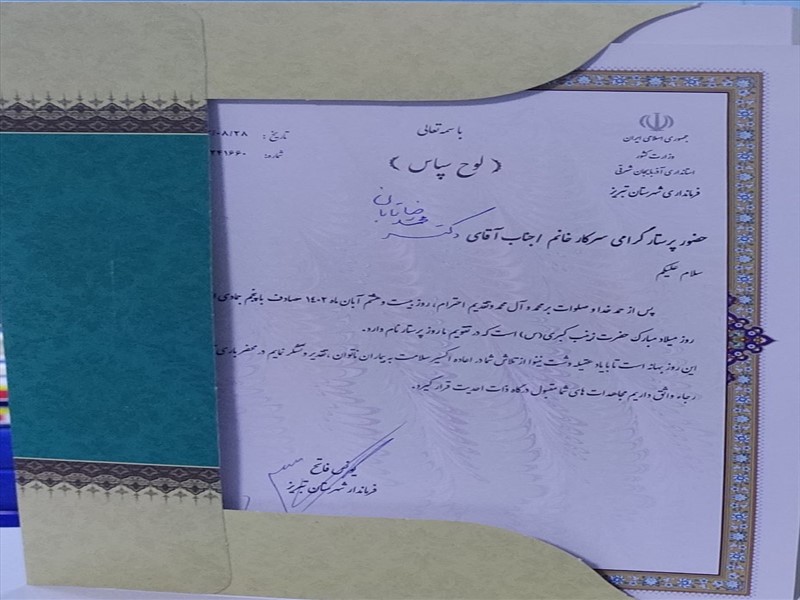 باسمه تعالی
جمهوری اسلامی ایران
وزارت کشور
استانداری آذربایجان شرقی
فرمانداری شهرستان تبریز
تاریخ: /۰۸/۲۸
شماره: ۲۴۱۶۶۰
(لوح سپاس)
حضور پرستار گرامی سرکار خانم / جناب آقای دکتر محمدرضا تابان
سلام علیکم
پس از حمد خدا و صلوات بر محمد و آل محمد و تقدیم احترام، روز بیست و هشتم آبان ماه ۱۴۰۲ مصادف با پنجم جمادی
روز میلاد مبارک حضرت زینب کبری (س) است که در تقویم ما روز پرستار نام دارد.
این روز بهانه است تا با یاد عقیله دشت نینوا از تلاش شما در اعاده اکسیر سلامت به بیماران ناتوان، تقدیر و تشکر نمایم در محضر باری
رجاء واثق داریم مجاهدات های شما مقبول درگاه ذات احدیت قرار گیرد.
فاتح
فرماندار شهرستان تبریز